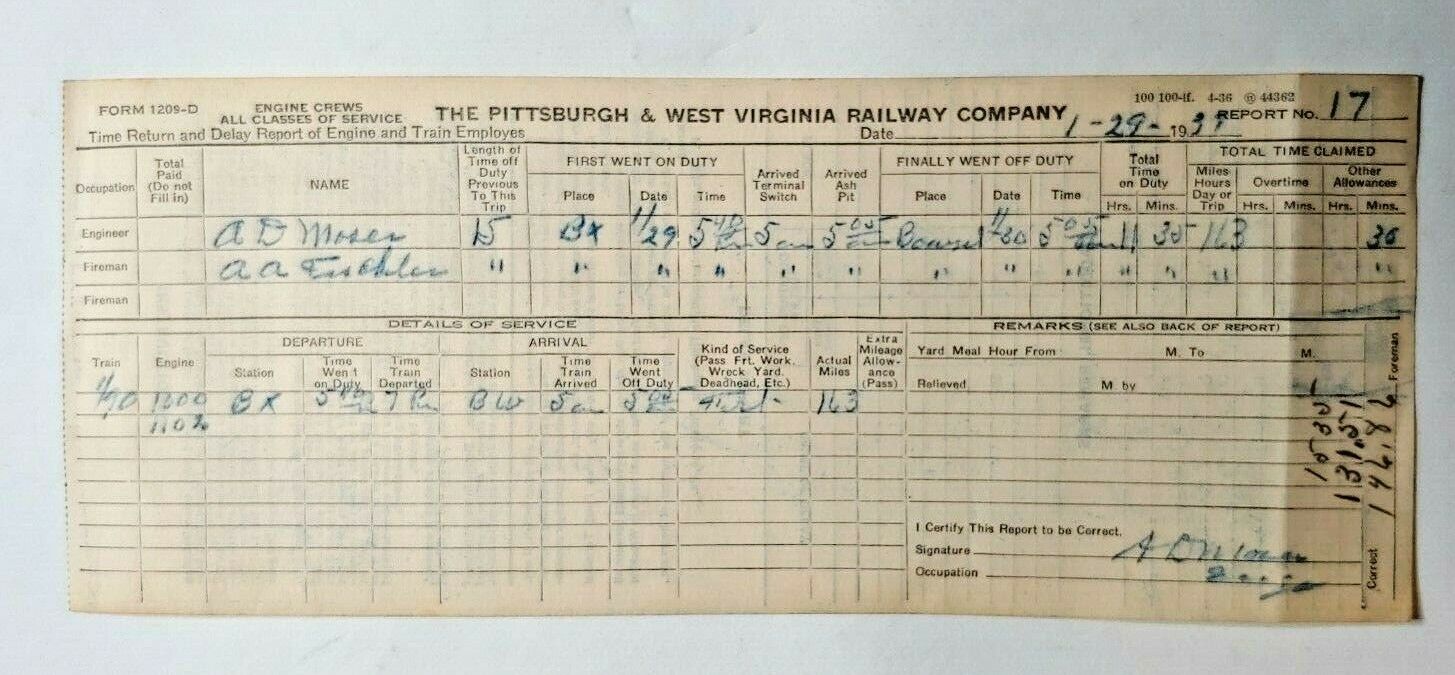 FORM 1209-D ENGINE CREWS THE PITTSBURGH & WEST VIRGINIA RAILWAY COMPANY 100 100-lf. 4-36 @ 44362
ALL CLASSES OF SERVICE REPORT No. 17
Time Return and Delay Report of Engine and Train Employes Date 1-29-1937
Occupation Total Paid (Do not Fill in) NAME Length of Time off Duty Previous To This Trip FIRST WENT ON DUTY Arrived Terminal Switch Arrived Ash Pit FINALLY WENT OFF DUTY Total Time on Duty TOTAL TIME CLAIMED
Place Date Time Place Date Time Hrs. Mins. Miles Hours Day or Trip Overtime Hrs. Mins. Other Allowances Hrs. Mins.
Engineer A D Moser 15 BX 1/29 5 40 5 am 5 05 1/30 5 05 11 35 163 35
Fireman A A " " " " " " " " " " " " "
Fireman
DETAILS OF SERVICE REMARKS (SEE ALSO BACK OF REPORT)
DEPARTURE ARRIVAL
Train Engine Station Time Went on Duty Time Train Departed Station Time Train Arrived Time Went Off Duty Kind of Service (Pass Frt. Work. Wreck Yard. Deadhead, Etc.) Actual Miles Extra Mileage Allowance (Pass)
Yard Meal Hour From: M. To M.
Relieved M by
1/90 1200 BX 5 40 7 Pm BW 5 am 5 05 163
1102
I Certify This Report to be Correct.
Signature A D Moser
Occupation
15 35
131.51
146.86
Correct Foreman